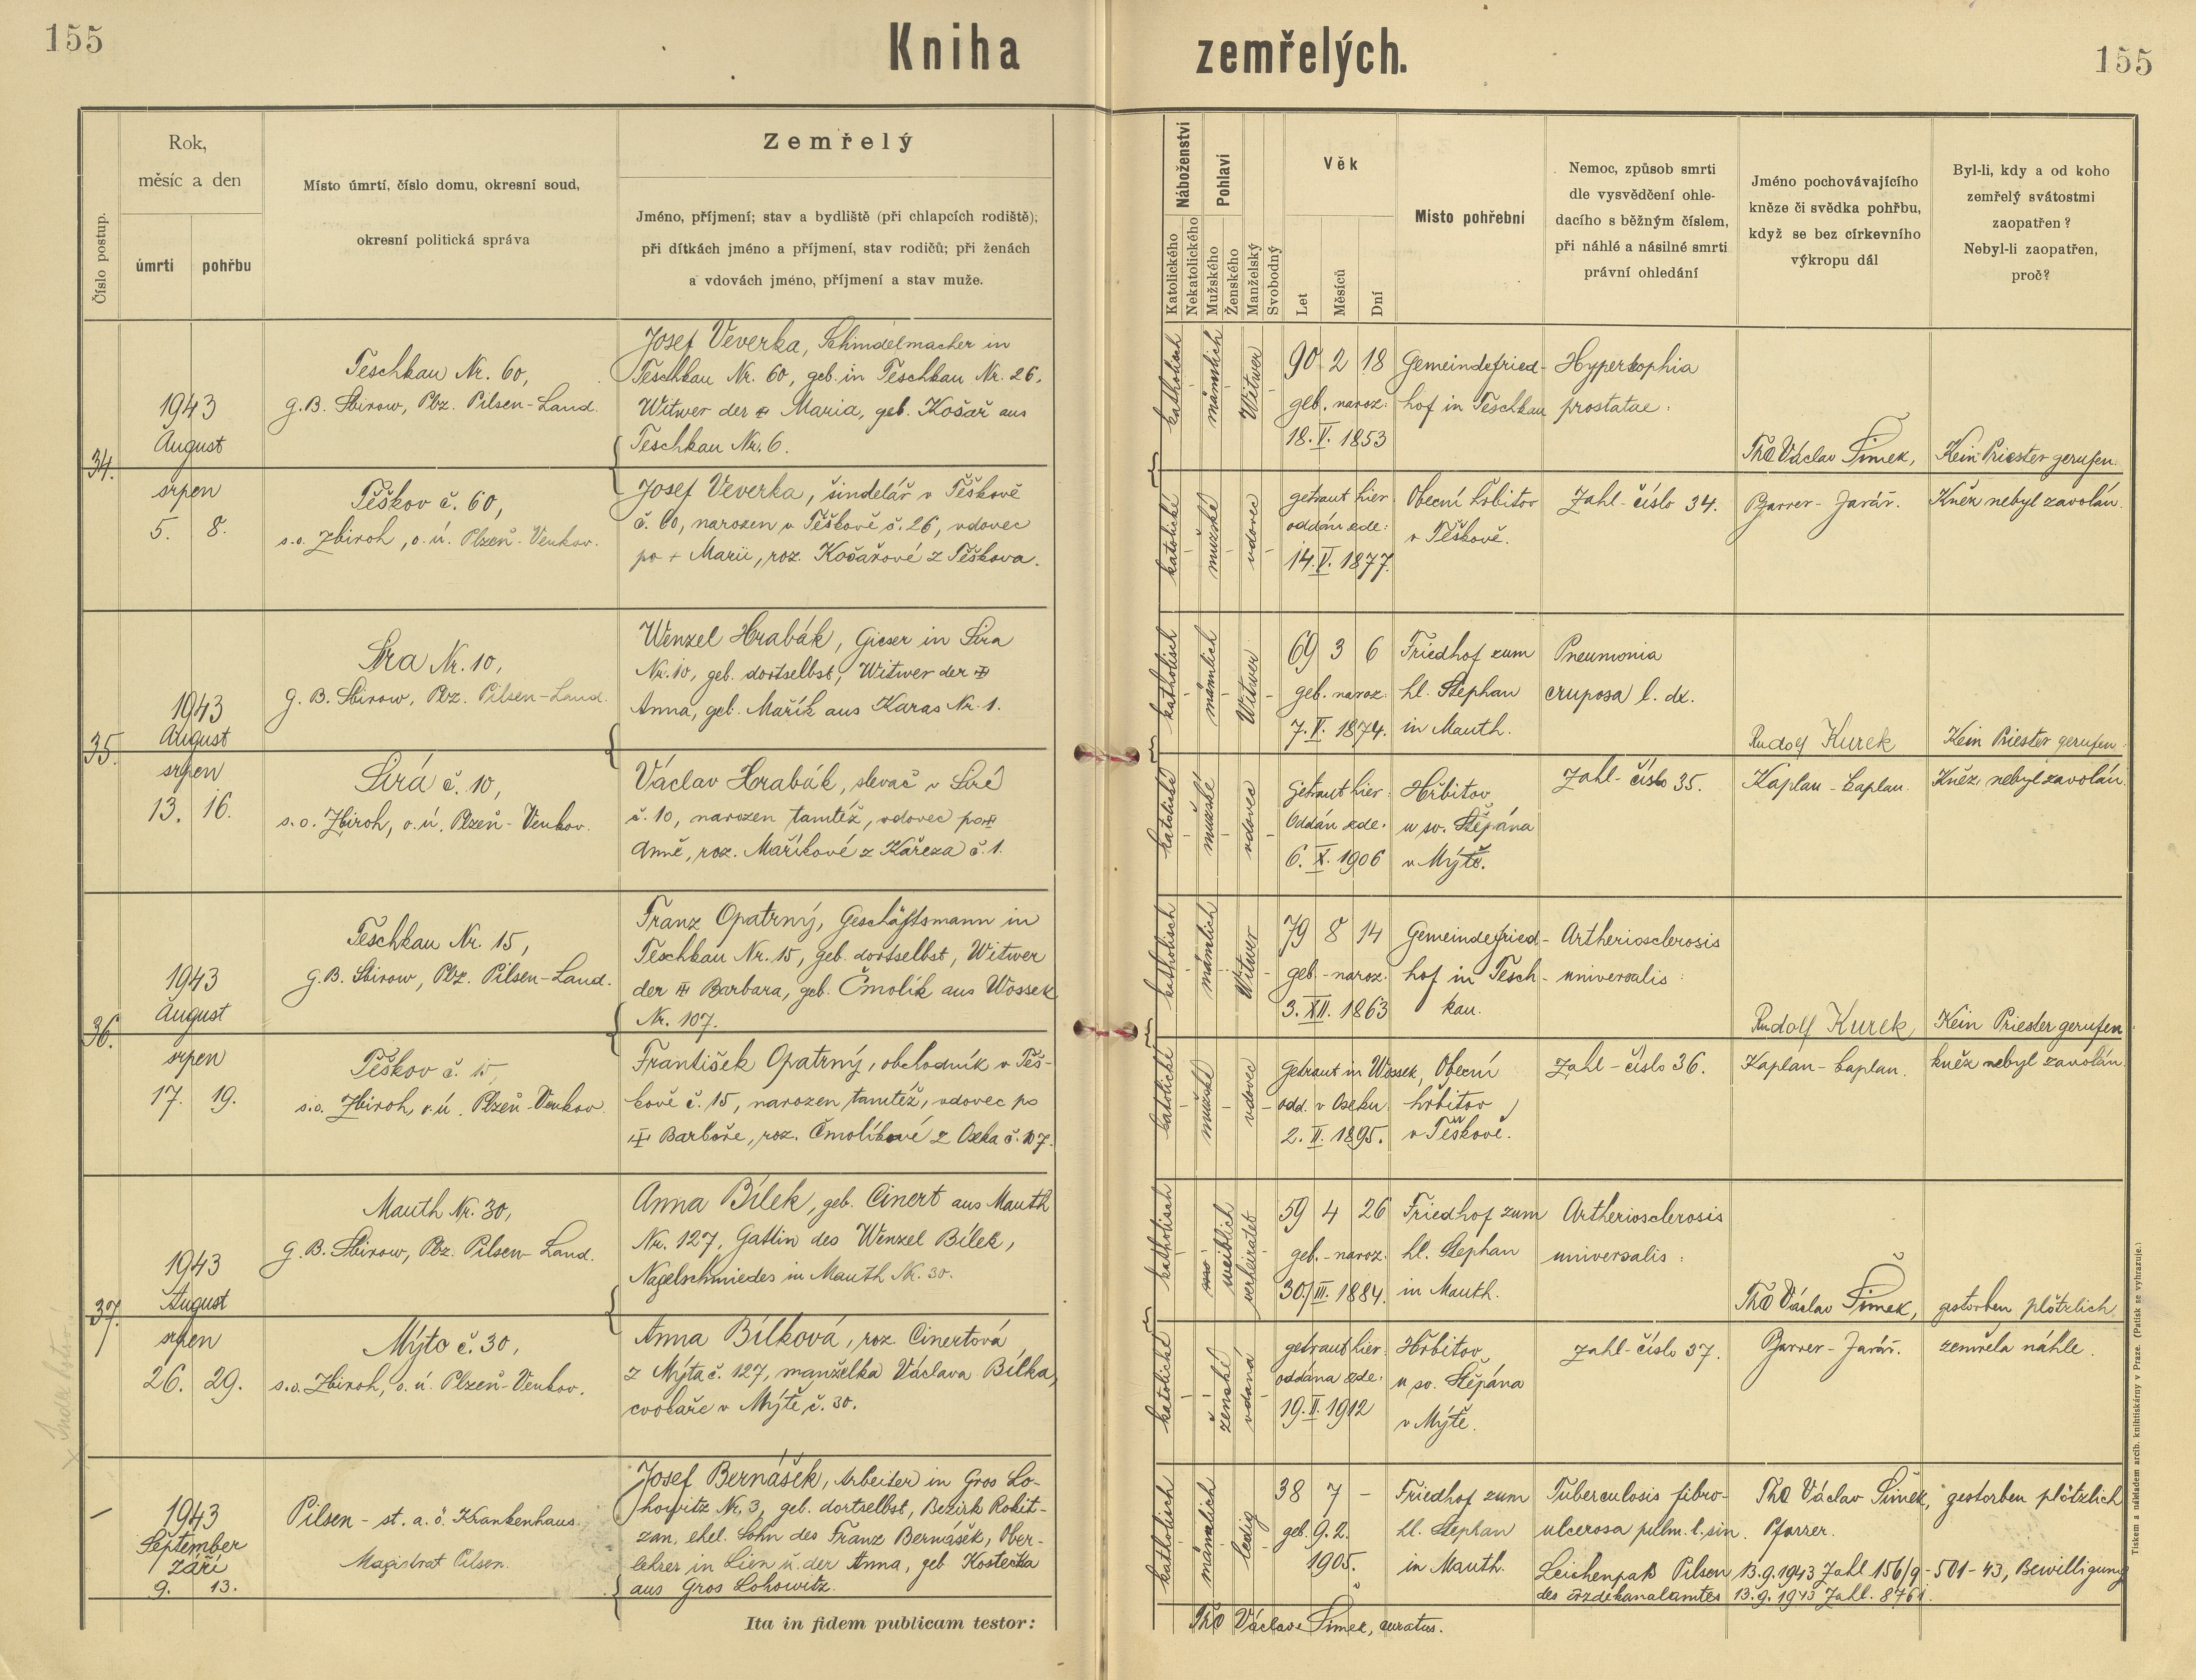 155
Kniha zemřelých.
155
Číslo postup.
Rok,
měsíc a den
úmrtí
pohřbu
Místo úmrtí, číslo domu, okresní soud,
okresní politická správa
Zemřelý
Jméno, příjmení; stav a bydliště (při chlapcích rodiště);
při dítkách jméno a příjmení, stav rodičů; při ženách
a vdovách jméno, příjmení a stav muže.
Náboženství
Katolického
Nekatolického
Pohlaví
Mužského
Ženského
Manželský
Svobodný
Věk
Let
Měsíců
Dní
Místo pohřební
Nemoc, způsob smrti
dle vysvědčení ohle-
dacího s běžným číslem,
při náhlé a násilné smrti
právní ohledání
Jméno pochovávajícího
kněze či svědka pohřbu,
když se bez církevního
výkropu dál
Byl-li, kdy a od koho
zemřelý svátostmi
zaopatřen?
Nebyl-li zaopatřen,
proč?
34.
1943
August
srpen
5. 8.
Teschkau Nr. 60,
G.B. Sbirow, Pbz. Pilsen-Land.
Těškov č. 60,
s.o. Zbiroh, o.ú. Plzeň-Venkov.
Josef Veverka, Schindelmacher in
Teschkau Nr. 60, geb. in Teschkau Nr. 26,
Witwer der Maria, geb. Košař aus
Teschkau Nr. 6.
Josef Veverka, šindelář v Těškově
č. 60, narozen v Těškově č. 26, vdovec
po + Marii, roz. Košařové z Těškova.
katholisch
männlich
Witwer
katolické
mužské
vdovec
90 2 18
geb. naroz:
18. V. 1853
getraut hier:
oddán zde:
14. V. 1877.
Gemeindefried-
hof in Teschkau
Obecní hřbitov
v Těškově.
Hypertophia
prostatae:
Zahl-číslo 34.
ThD Václav Šimek,
Pfarrer-Farář.
Kein Priester gerufen.
Kněz nebyl zavolán.
35.
1943
August
srpen
13. 16.
Sira Nr. 10,
G.B. Sbirow, Pbz. Pilsen-Land.
Sirá č. 10,
s.o. Zbiroh, o.ú. Plzeň-Venkov.
Wenzel Hrabák, Gieser in Sira
Nr. 10, geb. dortselbst, Witwer der
Anna, geb. Mařík aus Karas Nr. 1.
Václav Hrabák, slevač v Siré
č. 10, narozen tamtéž, vdovec po
Anně, roz. Maříkové z Kařeza č. 1.
katholisch
männlich
Witwer
katolické
mužské
vdovec
69 3 6
geb. naroz:
7. V. 1874.
Getraut hier:
Oddán zde:
6. X. 1906
Friedhof zum
hl. Stephan
in Mauth.
Hřbitov
u sv. Štěpána
v Mýtě.
Pneumonia
cruposa l. dx.
Zahl-číslo 35.
Rudolf Kurek
Kaplan-kaplan.
Kein Priester gerufen.
Kněz nebyl zavolán.
36.
1943
August
srpen
17. 19.
Teschkau Nr. 15,
G.B. Sbirow, Pbz. Pilsen-Land.
Těškov č. 15,
s.o. Zbiroh, o.ú. Plzeň-Venkov.
Franz Opatrný, Geschäftsmann in
Teschkau Nr. 15, geb. dortselbst, Witwer
der Barbara, geb. Čmolík aus Wossek
Nr. 107.
František Opatrný, obchodník v Těš-
kově č. 15, narozen tamtéž, vdovec po
Barboře, roz. Čmolíkové z Oseka č. 107.
katholisch
männlich
Witwer
katolické
mužské
vdovec
79 8 14
geb.-naroz:
3. XII. 1863
Getraut in Wossek,
odd. v Oseku:
2. II. 1895.
Gemeindefried-
hof in Tesch-
kau.
Obecní
hřbitov
v Těškově.
Artheriosclerosis
universalis:
Zahl-číslo 36.
Rudolf Kurek
Kaplan-kaplan.
Kein Priester gerufen
kněz nebyl zavolán.
37.
1943
August
srpen
26. 29.
Mauth Nr. 30,
G.B. Sbirow, Pbz. Pilsen-Land.
Mýto č. 30,
s.o. Zbiroh, o.ú. Plzeň-Venkov.
Anna Bílek, geb. Cinert aus Mauth
Nr. 127, Gattin des Wenzel Bílek,
Nagelschmiedes in Mauth Nr. 30.
Anna Bílková, roz. Cinertová
z Mýta č. 127, manželka Václava Bílka,
cvočkaře v Mýtě č. 30.
katholisch
weiblich
verheiratet
katolické
ženské
vdaná
59 4 26
geb.-naroz:
30. III. 1884.
getraut hier:
oddána zde:
19. II. 1912
Friedhof zum
hl. Stephan
in Mauth.
Hřbitov
u sv. Štěpána
v Mýtě.
Artheriosclerosis
universalis:
Zahl-číslo 37.
ThD Václav Šimek,
Pfarrer-Farář.
gestorben plötzlich
zemřela náhle.
1943
September
září
9. 13.
Pilsen - st. a. ö. Krankenhaus.
Magistrat Pilsen.
Josef Bernášek, Arbeiter in Gros Lo-
howitz Nr. 3, geb. dortselbst, Bezirk Rokit-
zan, ehel. Sohn des Franz Bernášek, Ober-
lehrer in Lien u. der Anna, geb. Kostečka
aus Gros Lohowitz.
katholisch
männlich
ledig
38 7 -
geb. 9. 2.
1905.
Friedhof zum
hl. Stephan
in Mauth.
Tuberculosis fibro-
ulcerosa pulm. l. sin.
ThD Václav Šimek,
Pfarrer.
gestorben plötzlich
Leichenpaß Pilsen 13.9.1943 Zahl 156/9-501-43, Bewilligung
des Erzdekanalamtes 13.9.1943 Zahl. 8761.
Ita in fidem publicam testor:
ThD Václav Šimek, curatus.
Tiskem a nákladem arcib. knihtiskárny v Praze. (Patisk se vyhrazuje.)